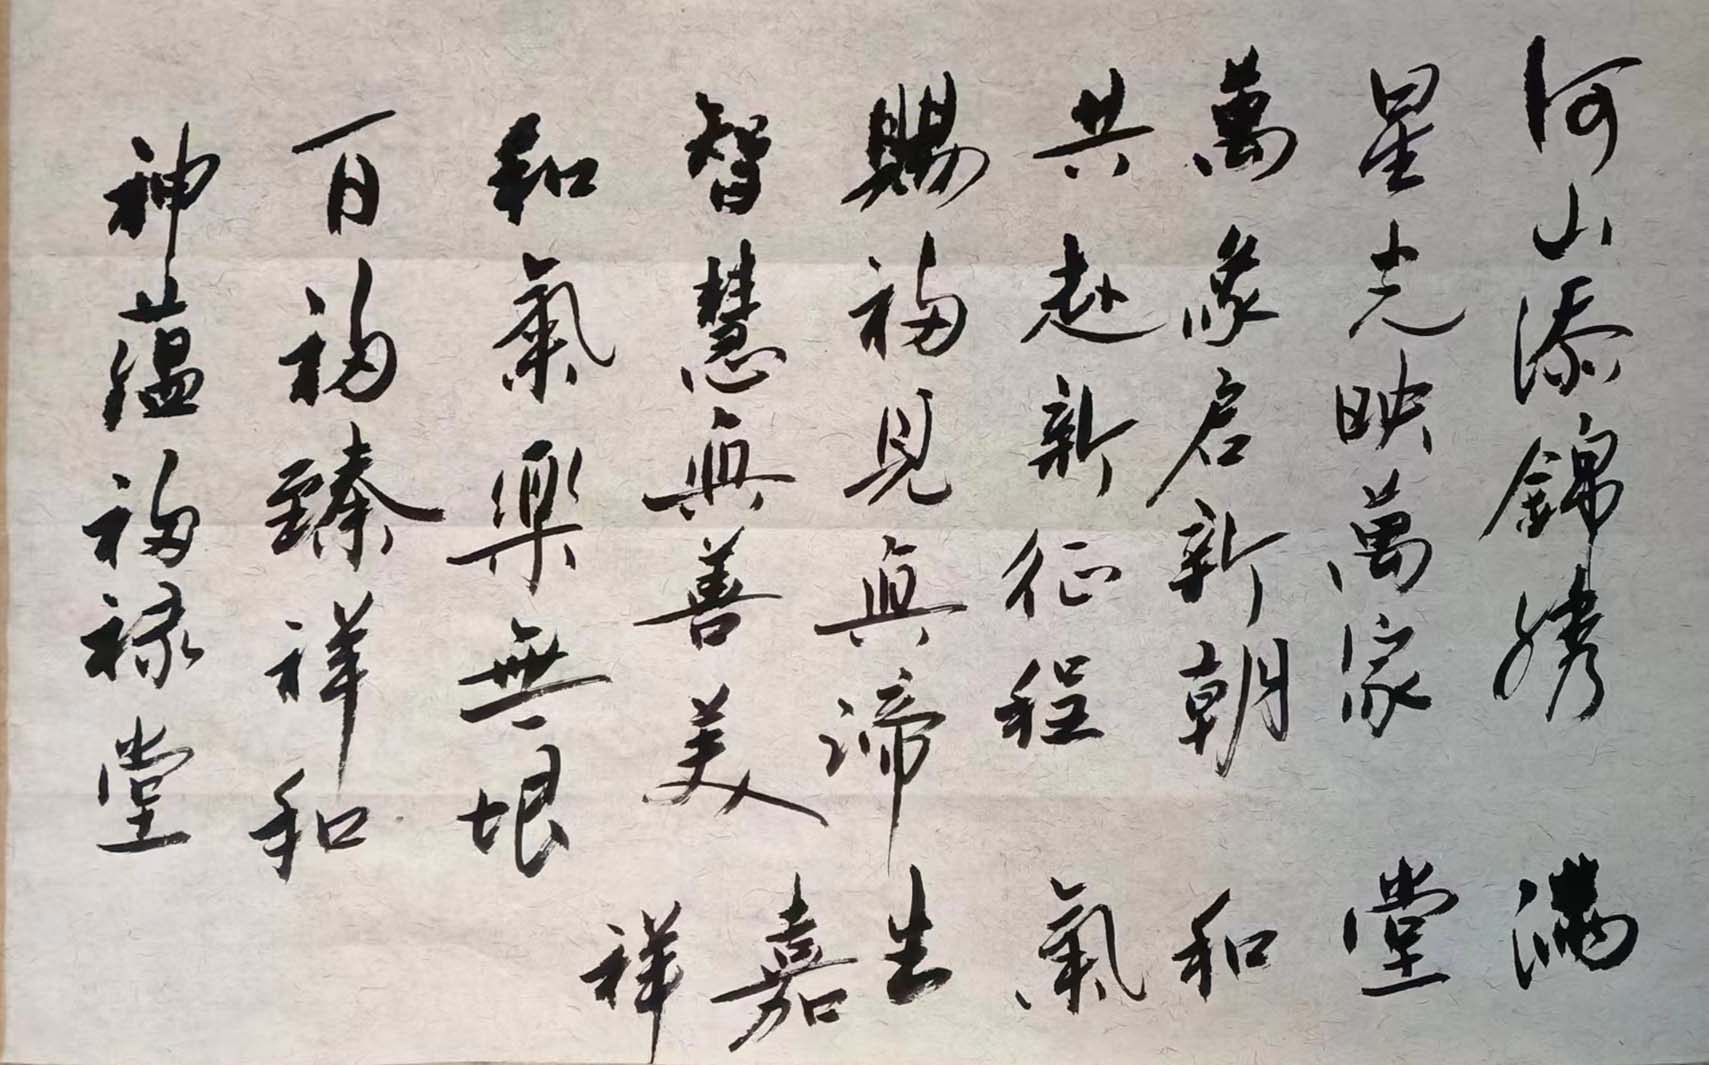 河山添錦繡
星光映萬家
萬象启新朝
共赴新征程
賜福見真諦
智慧真善美
和氣樂無垠
百福臻祥和
神蘊福禄堂
滿堂和氣生嘉祥